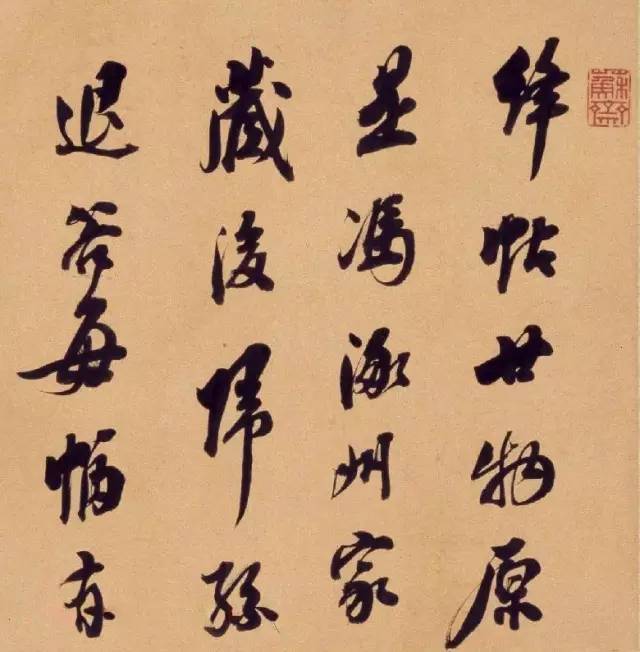 絳帖物原
是馮涿州家
藏後歸孫
退谷每幅有